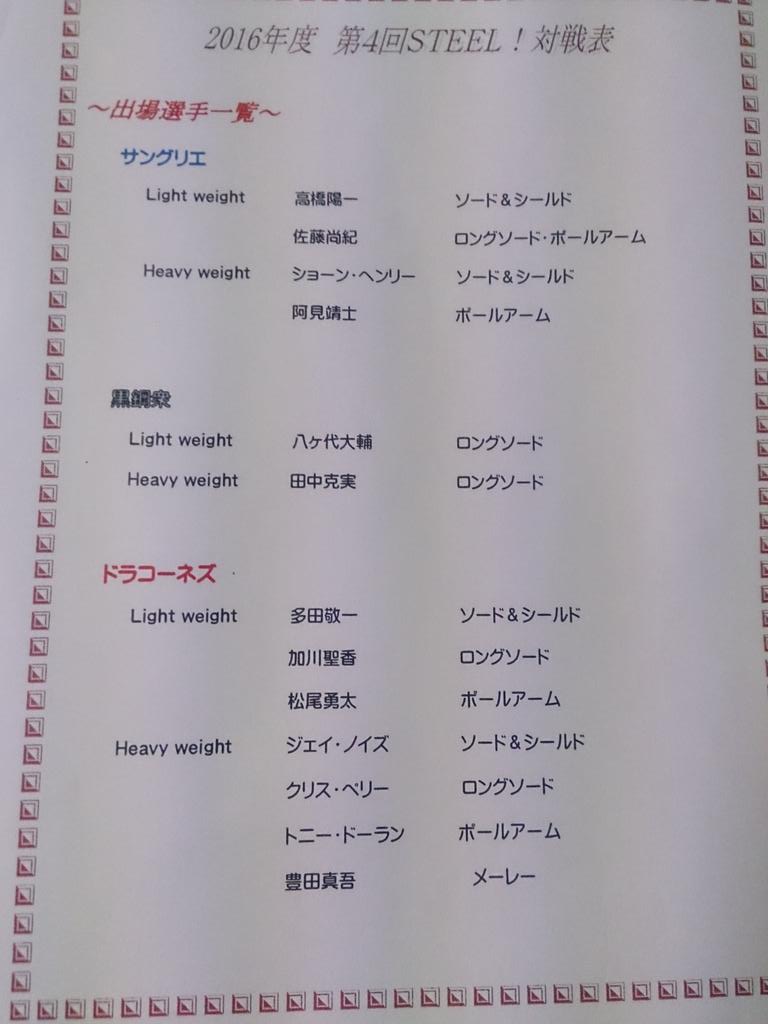 2016年度 第4回STEEL！対戦表
～出場選手一覧～
サングリエ
Light weight 高橋陽一 ソード＆シールド
佐藤尚紀 ロングソード・ポールアーム
Heavy weight ショーン・ヘンリー ソード＆シールド
阿見靖士 ポールアーム
黒鋼衆
Light weight 八ヶ代大輔 ロングソード
Heavy weight 田中克実 ロングソード
ドラコーネズ
Light weight 多田敬一 ソード＆シールド
加川聖香 ロングソード
松尾勇太 ポールアーム
Heavy weight ジェイ・ノイズ ソード＆シールド
クリス・ペリー ロングソード
トニー・ドーラン ポールアーム
豊田真吾 メーレー